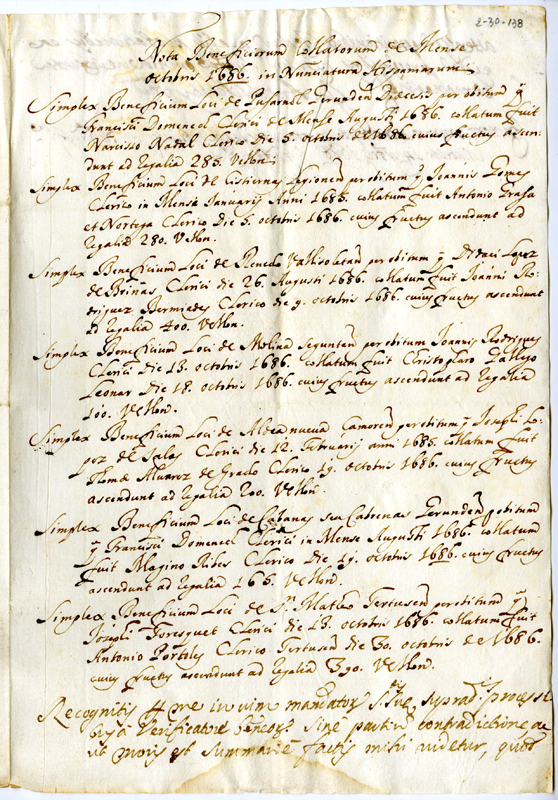 2-30-138
Nota Beneficiorum Collatorum de Mense
octobris 1686. in Nunciatura Hispaniarum
Simplex Beneficium Loci de Gerunden Diecesis per obitum q
Francisci Domenech Clerici de Mense Augusti 1686. collatum fuit
Narcisso Nadal Clerico die 5. octobris de 1686. cuius fructus ascen-
dunt ad Regalia 285. Vellon.
Simplex Beneficium Loci de Cistierna Legionen per obitum q Joannis Gomes
Clerico in Mense Januarij Anni 1685. collatum fuit Antonio
et Nortega Clerico Die 5. octobris 1686. cuius fructus ascendunt ad
Regalia 280. Vellon.
Simplex Beneficium Loci de Renedo Vallisoletan per obitum q Didaci Lopez
de Briñas Clerici die 26. Augusti 1686. collatum fuit Joanni Ro-
driguez Bermudes Clerico die 9. octobris 1686. cuius fructus ascendunt
ad Regalia 400. Vellon.
Simplex Beneficium Loci de Molina Seguntin per obitum Joannis Rodrigues
Clerici die 13. octobris 1686. collatum fuit Christoforo Gallego
Leonar die 18. octobris 1686. cuius fructus ascendunt ad Regalia
100. Vellon.
Simplex Beneficium Loci de Aldea nueva Camoren per obitum q Joseph Lo-
pez de Salas Clerici die 12. Februarij anni 1685. collatum fuit
Thomæ Alvarez de Grado Clerico 19. octobris 1686. cuius fructus
ascendunt ad Regalia 200. Vellon.
Simplex Beneficium Loci de Cabanas seu Cabrenas Gerunden p obitum
q Francisci Domenech Clerici in Mense Augusti 1686. collatum
fuit Magino Ribes Clerico Die 19. octobris 1686. cuius fructus
ascendunt ad Regalia 165. Vellon.
Simplex Beneficium Loci de Sn. Matheo Dertusen per obitum q
Josephi Foresquet Clerici die 13. octobris 1686. collatum fuit
Antonio Portoles Clerico Dertusen die 30. octobris de 1686.
cuius fructus ascendunt ad Regalia 390. Vellon.
Recognitis p me in vim mandatorum suprad process
Verificatione sine partium contradictione ac
ut moris est summarie factis mihi videtur, quod